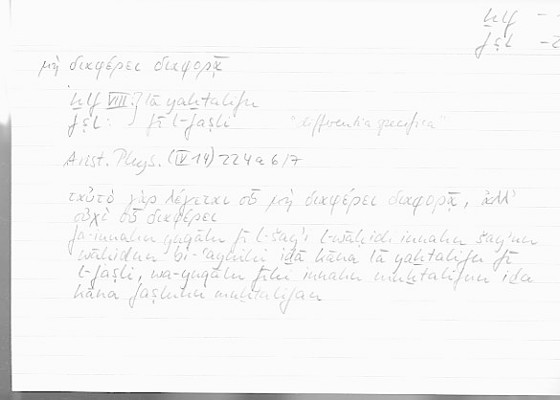 ḫlf
fṣl
μὴ διαφέρει διαφορᾷ
ḫlf VIII: lā yaḫtalifu
fṣl: fī l-faṣli "differentia specifica"
Arist. Phys. (IV 14) 224 a 6/7
ταὐτὸ γὰρ λέγεται οὗ μὴ διαφέρει διαφορᾷ, ἀλλ'
οὐχὶ οὗ διαφέρει
fa-innahu yuqālu fī l-šayʾi l-wāḥidi innahu šayʾun
wāḥidun bi-ʿaynihi iḏā kāna lā yaḫtalifu fī
l-faṣli, wa-yuqālu fīhi innahu muḫtalifun iḏā
kāna faṣluhu muḫtalifan